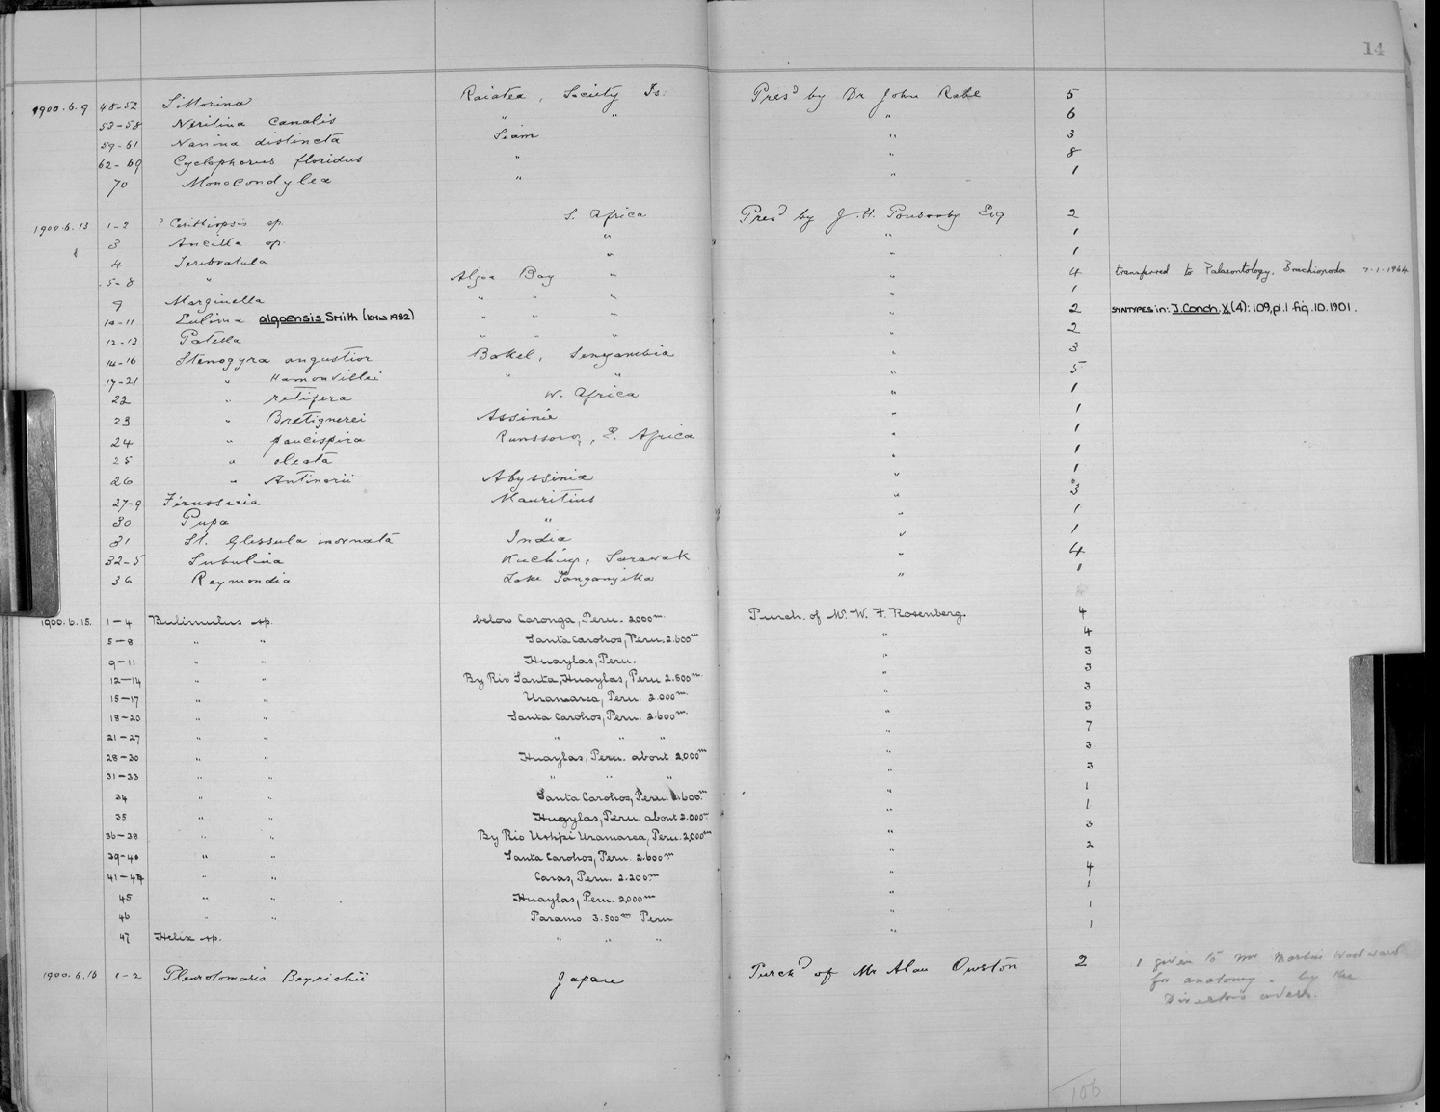 14
1900.6.9 48-52 Littorina Raiatea, Society Is. Presd by Dr John Rabe 5
53-58 Neritina canalis " " " 6
59-61 Nanina distincta Siam " 3
62-69 Cyclophorus floridus " " 8
70 Monocondylea " " 1
1900.6.13 1-2 ? Cerithiopsis sp. S. Africa Presd by J. H. Ponsonby Esq 2
3 Ancilla sp. " " 1
4 Terebratula " " 1
5-8 " Algoa Bay " " 4 transferred to Palaeontology, Brachiopoda 7-1-1964
9 Marginella " " " " 1
10-11 Eulima algoensis Smith (1982) " " " " 2 SYNTYPES in: J. Conch. X (4): 109, pl. 1 fig. 10. 1901.
12-13 Patella " " " " 2
14-16 Stenogyra angustior Bakel, Senegambia " 3
17-21 " Hamonvillei " " " 5
22 " retifera W. Africa " 1
23 " Bretignerei Assinie " 1
24 " paucispira Runssoro, E. Africa " 1
25 " oleata " 1
26 " Antinorii Abyssinia " 1
27-9 Ferussacia Mauritius " 3
30 Pupa " " 1
31 St. Glessula inornata India " 1
32-5 Subulina Kuching, Sarawak " 4
36 Reymondia Lake Tanganyika " 1
1900.6.15. 1-4 Bulimulus sp. below Caronga, Peru. 2000m. Purch. of Mr. W. F. Rosenberg. 4
5-8 " " Santa Carohos, Peru. 2.600m " 4
9-11 " " Huaylas, Peru. " 3
12-14 " " By Rio Santa, Huaylas, Peru 2.500m. " 3
15-17 " " Uramarca, Peru. 2.000m. " 3
18-20 " " Santa Carohos, Peru. 2.600m. " 3
21-27 " " " " " " 7
28-30 " " Huaylas, Peru. about 2,000m " 3
31-33 " " " " " " 3
34 " " Santa Carohos, Peru. 2.600m " 1
35 " " Huaylas, Peru. about 2.000m " 1
36-38 " " By Rio Ushpi Uramarca, Peru. 2,000m " 3
39-40 " " Santa Carohos, Peru. 2.600m " 2
41-44 " " Caras, Peru. 2.200m " 4
45 " " Huaylas, Peru. 2,000m " 1
46 " " Paramo 3.500m Peru " 1
47 Helix sp. " " " " 1
1900.6.16 1-2 Pleurotomaria Beyrichii Japan Purchd of Mr Alan Owston 2 1 given to Mr Martin Woodward
for anatomy - by the
Director's orders.
106